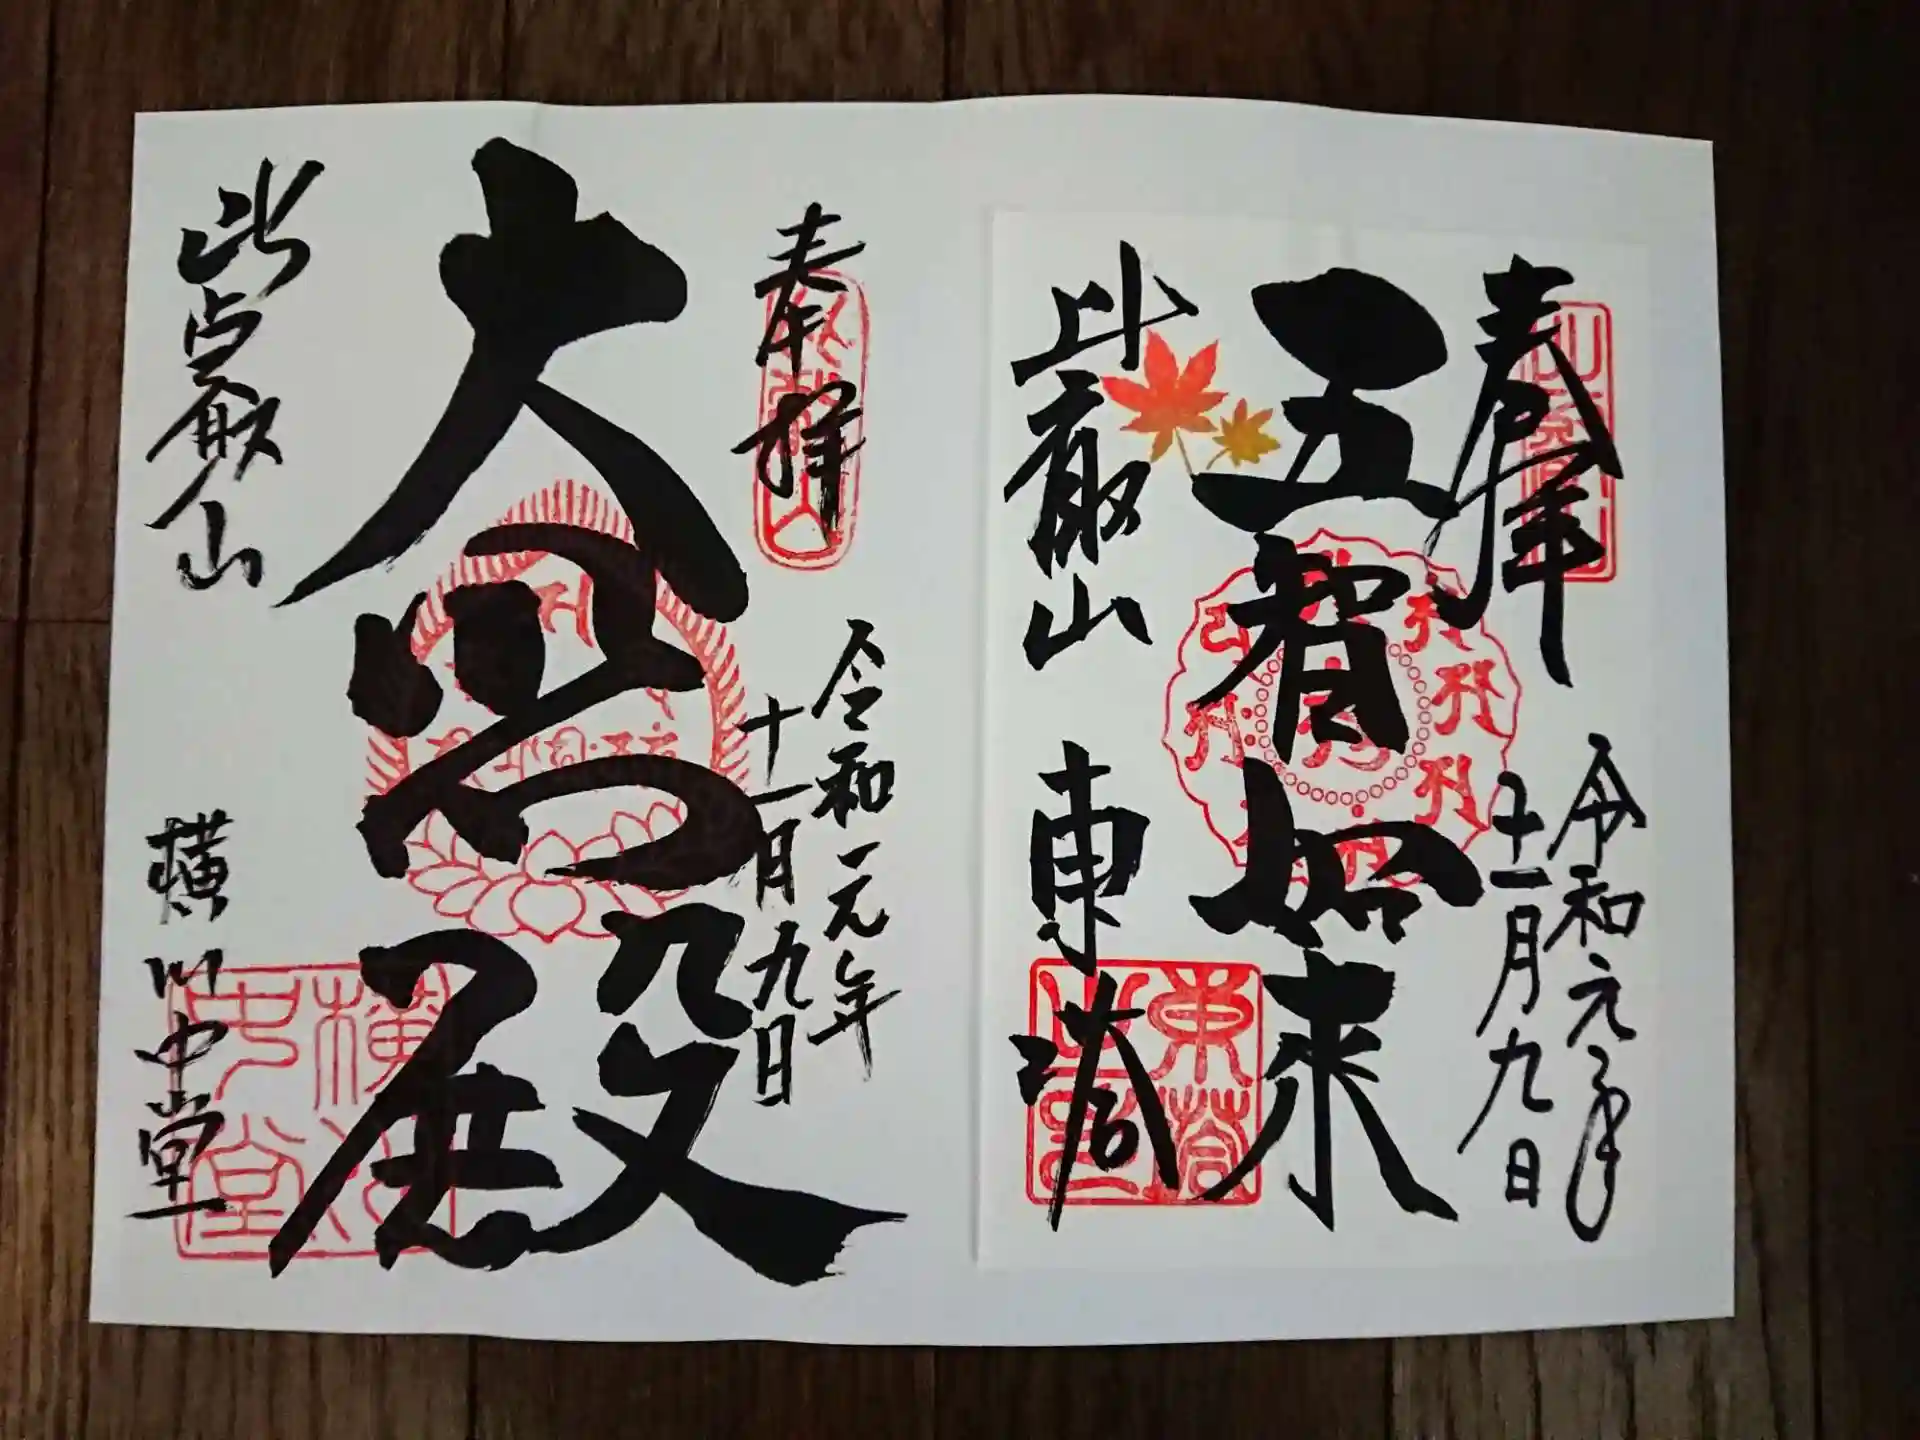 奉拝
令和元年
十一月九日
五智如来
比叡山
東塔
東塔
之印
奉拝
令和元年
十一月九日
大悲殿
比叡山
横川中堂
横川
中堂